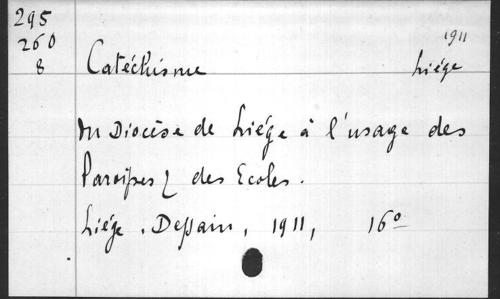 295
260
8
1911
Catéchisme Liége
du Diocèse de Liége à l'usage des
Paroisses & des Ecoles.
Liége. Dessain, 1911, 16º